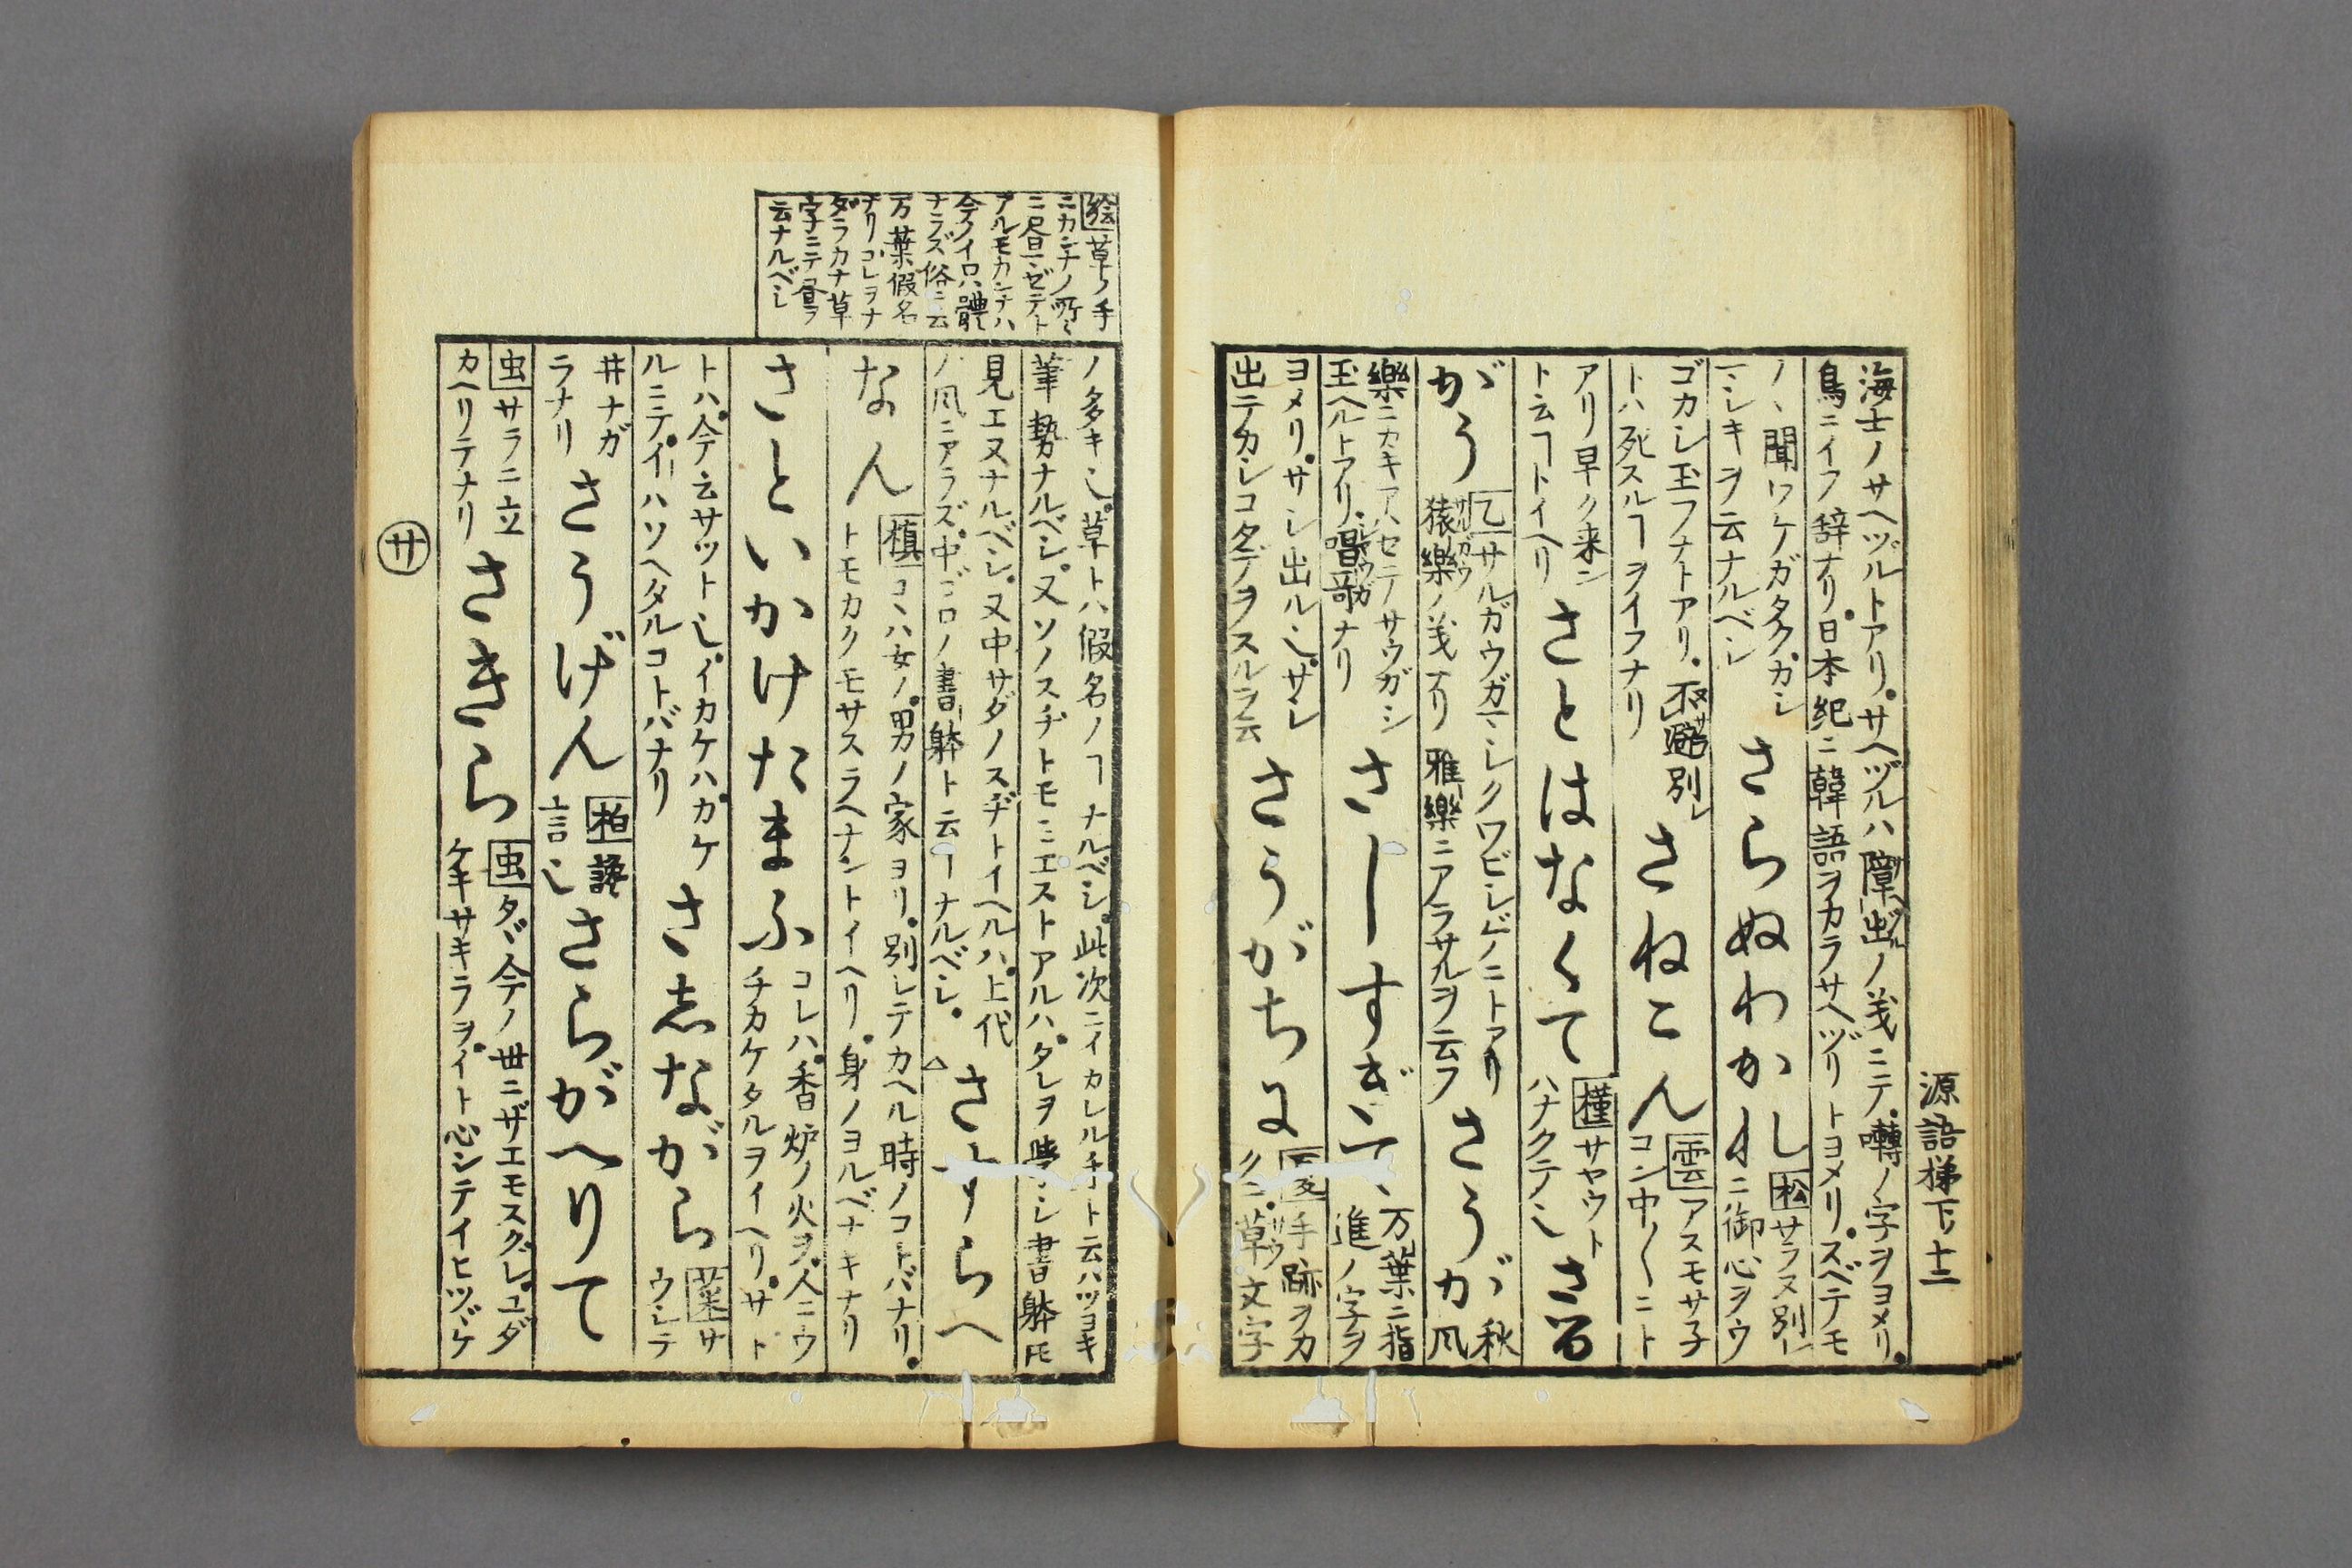 源語梯下十二
海士ノサヘヅルトアリ。サヘヅルハ障出ノ義ニテ。囀ノ字ヲヨメリ。
鳥ニイフ辞ナリ。日本紀ニ韓語ヲカラサヘヅリトヨメリ。スベテモ
ノヽ聞ワケガタク。カシ
マシキヲ云ナルベシ
さらぬわかれ
松サラヌ別レ
ニ御心ヲウ
ゴカシ玉フナトアリ。不避別レ
トハ死スルヿヲイフナリ
さねこん
雲アスモサ子
コン中〳〵ニト
アリ早ク来ン
ト云ヿトイヘリ
さとはなくて
槿サヤウト
ハナクテ也
さる
がう
乙サルガウガマシクワビシゲニトアリ
猿樂ノ義ナリ 雅樂ニアラサルヲ云フ
さうが
秋
風
樂ニカキアハセテサウガシ
玉ヘルトアリ。唱歌ナリ
さしすぎて
万葉ニ指
進ノ字ヲ
ヨメリ。サシ出ル也。サシ
出テカシコダテヲスルヲ云
さうがちに
手跡ヲカ
クニ。草文字
ノ多キ也。草トハ假名ノヿナルベシ。此次ニイカレル手ト云ハツヨキ
筆勢ナルベシ。又ソノスヂトモミエストアルハ。タレヲ學シ書躰𪜈
見エヌナルベシ。又中サダノスヂトイヘルハ。上代
ノ風ニアラズ。中ゴロノ書躰ト云ヿナルベシ。△
絵草ノ手
ニカンナノ所〻
ニ昼マゼテト
アルモカンナハ
今ノイロハ體
ナラズ俗ニ云
万葉假名
ナリコレヲナ
ダラカナ草
字ニテ昼ヲ
云ナルベシ
さすらへ
なん
槙コヽハ女ノ。男ノ家ヨリ。別レテカヘル時ノコトバナリ。
トモカクモサスラヘナントイヘリ。身ノヨルベナキナリ
さといかけたまふ
コレハ。香炉ノ火ヲ。人ニウ
チカケタルヲイヘリ。サト
トハ。今云サツト也。イカケハ。カケ
ルニテ。イハソヘタルコトバナリ
さ志ながら
葉サ
ウシテ
井ナガ
ラナリ
さうげん
柏讒
言也
さらがへりて
虫サラニ立
カヘリテナリ
さきら
虫タヾ今ノ丗ニザエモスグレ。ユダ
ケキサキラヲ。イト心シテイヒツヾケ
サ